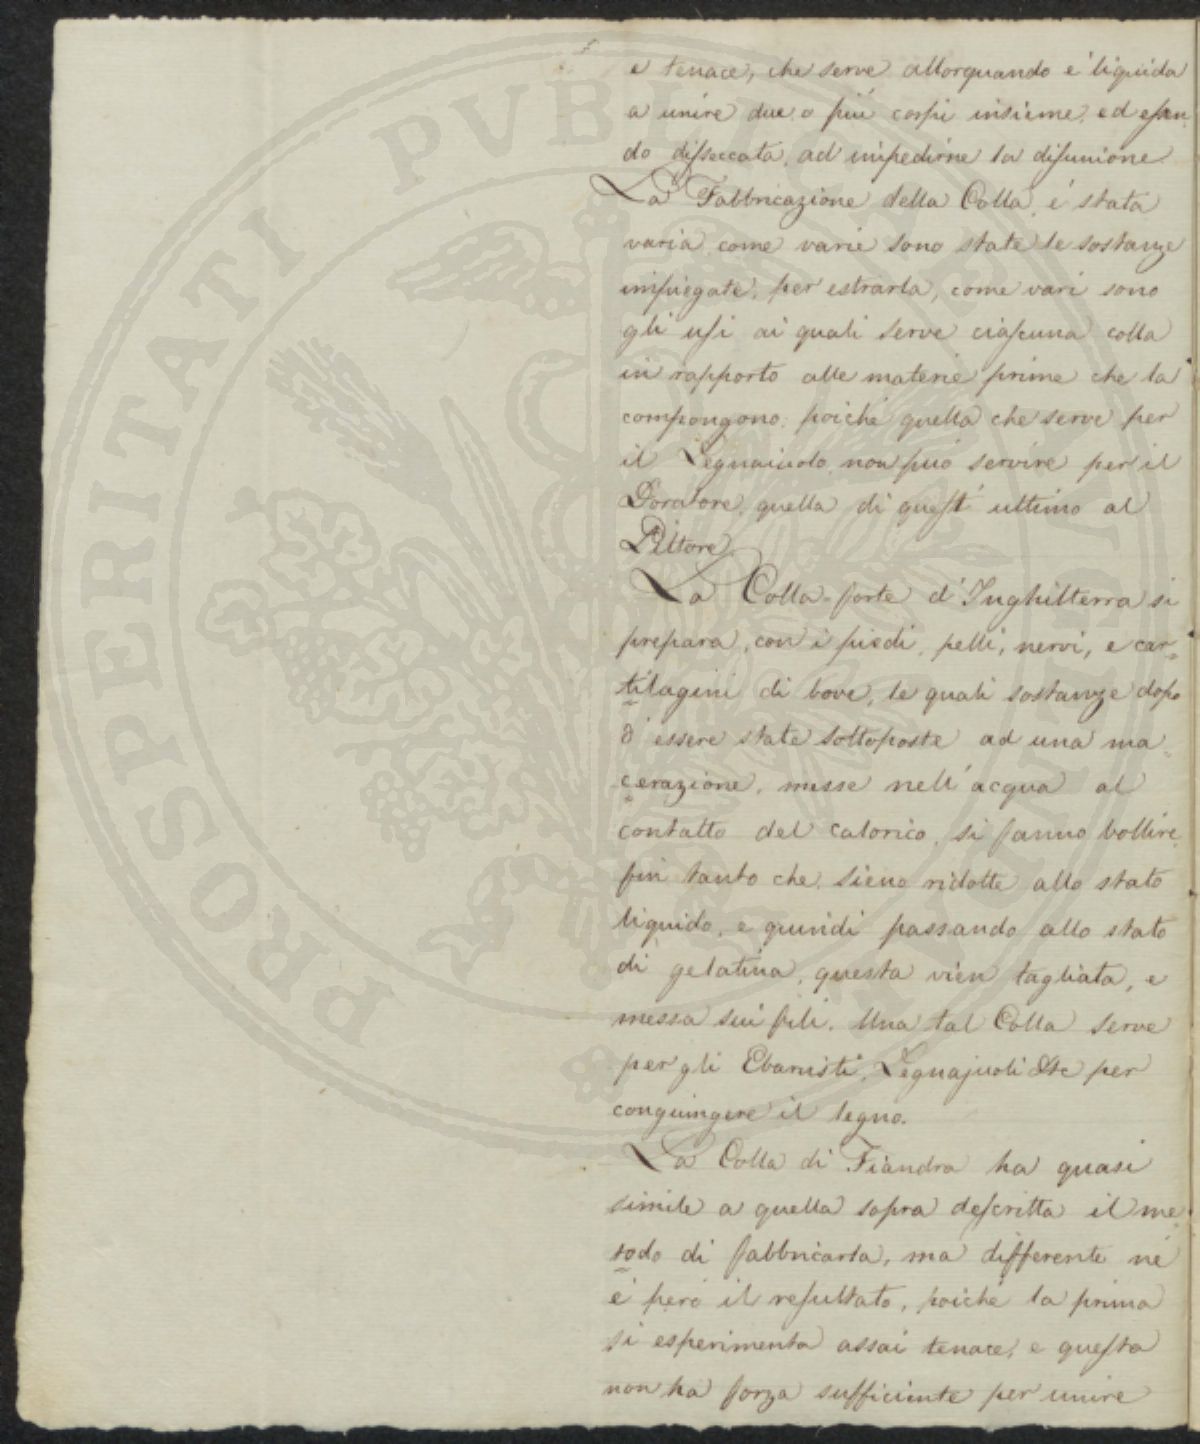 e tenace, che serve allorquando è liquida
a unire due o più corpi insieme, ed essen
do disseccata, ad impedirne la disunione.
La Fabbricazione della Colla, è stata
varia come varie sono state le sostanze
impiegate, per estrarla, come vari sono
gli usi ai quali serve ciascuna colla
in rapporto alle materie prime che la
compongono; poiché quella che serve per
il Legnaiuolo, non può servire per il
Doratore, quella di quest' ultimo al
Pittore.
La Colla-forte d'Inghilterra si
prepara, con i piedi, pelli, nervi, e car=
tilagini di bove, le quali sostanze dopo
d'essere state sottoposte ad una ma=
cerazione, messe nell'acqua al
contatto del calorico, si fanno bollire
fin tanto che sieno ridotte allo stato
liquido, e quindi passando allo stato
di gelatina, questa vien tagliata, e
messa sui fili. Una tal Colla serve
per gli Ebanisti, Legnajuoli &c per
congiungere il legno.
La Colla di Fiandra ha quasi
simile a quella sopra descritta il me=
todo di fabbricarla, ma differente né
è però il resultato, poiché la prima
si esperimenta assai tenace, e questa
non ha forza sufficiente per unire
PROSPERITATI PVBLICAE